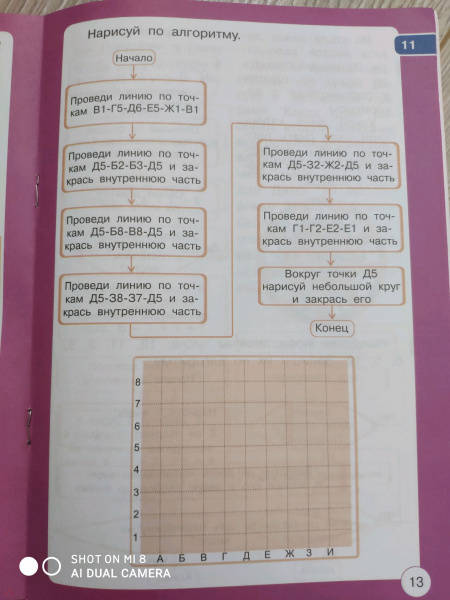 Нарисуй по алгоритму.
11
Начало
Проведи линию по точ-
кам В1-Г5-Д6-Е5-Ж1-В1
Проведи линию по точ-
кам Д5-Б2-Б3-Д5 и за-
крась внутреннюю часть
Проведи линию по точ-
кам Д5-Б8-В8-Д5 и за-
крась внутреннюю часть
Проведи линию по точ-
кам Д5-З8-З7-Д5 и за-
крась внутреннюю часть
Проведи линию по точ-
кам Д5-З2-Ж2-Д5 и за-
крась внутреннюю часть
Проведи линию по точ-
кам Г1-Г2-Е2-Е1 и за-
крась внутреннюю часть
Вокруг точки Д5
нарисуй небольшой круг
и закрась его
Конец
8
7
6
5
4
3
2
1
А Б В Г Д Е Ж З И
13
SHOT ON MI 8
AI DUAL CAMERA